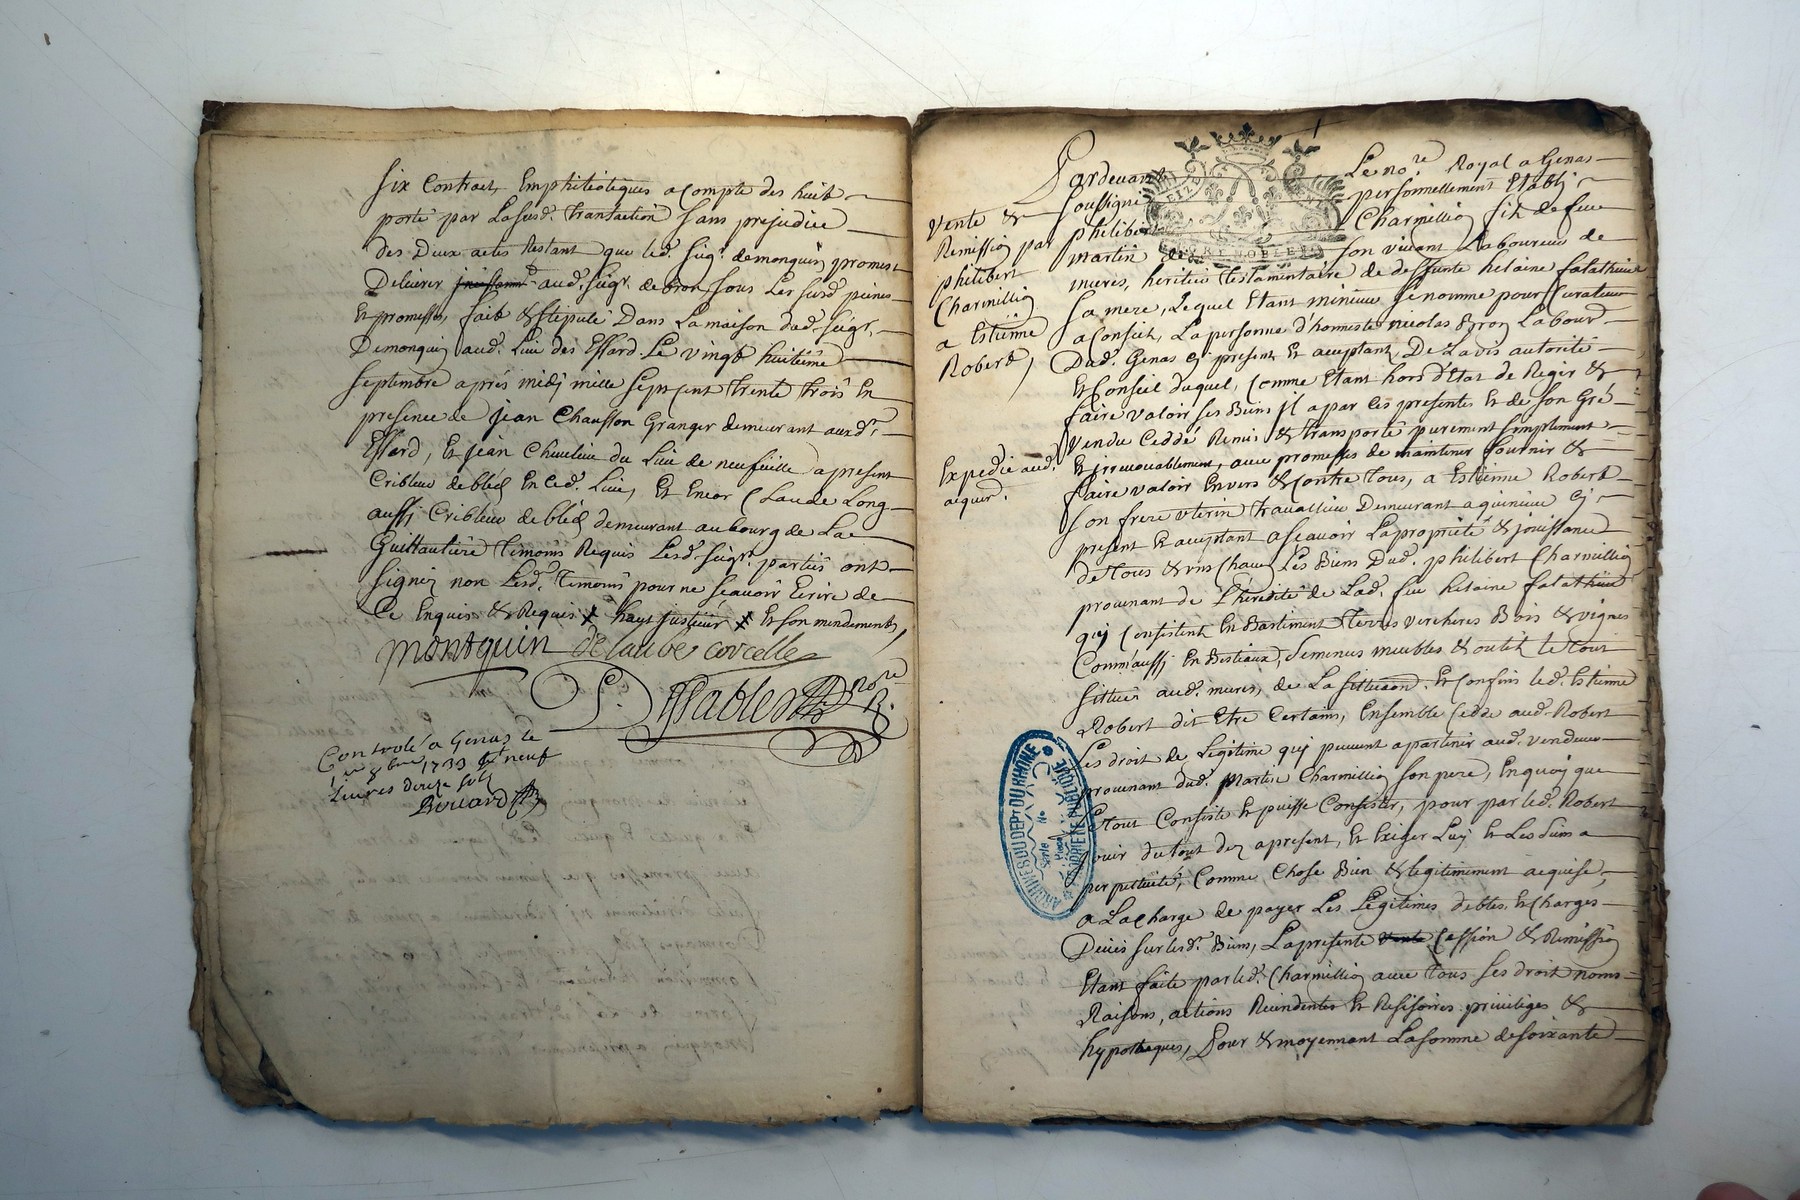 Six Contract, Emphiteotiques acompte des huit
porté par Lasusd. transaction sans prejudice
des Deux actes Restant que led. seigr. demonquin promest
Delivrer aud. seigr. de bron sous Les susd. peines
Et promesses, fait & stipulé Dans La maison dud. seigr.
Demonquin aud. Lieu des Essard Le vingt huitième
Septembre aprés midy mille sept cent trente trois En
presence de jean Chausson Granger demeurant auxd.
Essard, Et jean du Lieu de neufville apresent
Cribleur debled En Ced. Lieu, Et Encor Claude Long
aussi Cribleur debled demeurant aubourg de La
Guillautière Temoins Requis Lesd. seigr. parties ont
signez non Lesd. Temoins pour ne scavoir Ecrire de
Ce Enquis & Requis x haut justicier x Et son mendement,
montquin delaube corcelle
Essables nore R.
Controlé a Genas le
8bre 1733 neuf
Livres douze sols
Pardevant Le nore. Royal a Genas
soussigné personnellement Etably
philibert Charmillion fils de feu
martin de son vivant Laboureur de
mures, heritier testamentaire de deffunte helaine falathieu
Sa mere, Lequel Etant mineur senomme pour Curateur
aConseil, La personne d'honneste nicolas Labour.
Dud. Genas cy present Et aceptant, De Lavis autorité
Et Conseil duquel, Comme Etant hors d'Etat de Regir &
faire valoir ses Biens il a par Ces presentes Et de son Gré
vendu Ceddé Remis & transporté purement simplement
Et irrevocablement, avec promesses de maintenir fournir &
faire valoir Envers & Contre tous, a Estienne Robert
Son frere uterin travailleur Demeurant a cy
present Et aceptant ascavoir La proprieté & jouissance
detous & uns Chacun Les Biens Dud. philibert Charmillion
provenant de L'heredité de Lad. feue helaine falathieu
quy Consistent En Bastiment Terres vercheres Bois & vignes
Comm'aussi En Bestiaux, semences meubles & outils le tout
sittués aud. mures, de La sittuaon. Et Confins led. Estienne
Robert dit Etre Certain, Ensemble Cedde aud. Robert
Les droit de Legitime quy peuvent apartenir aud. vendeur
provenant dud. Martin Charmillion son pere, En quoy que
Le tout Consiste Et puisse Consister, pour par led. Robert
jouir du tout dez apresent, Et Exiger Luy Et Les siens a
perpetuité, Comme Chose Bien & legitimement acquise,
a La charge de payer Les Legitimes debtes & Charges
Deües sur lesd. Biens, La presente Cession & Remission
Etant faite par led. Charmillion avec tous ses droit noms
Raisons, actions Recindentes Et Resisoires privileges &
hypotheques, Pour & moyennant La somme de soixante
vente &
Remission par
philibert
Charmillion
a Estienne
Robert,
Expedié aud.
aquer.
GRENOBLE
ARCHIVES DU DEPT DU RHÔNE
PROPRIÉTÉ PUBLIQUE
Série
No